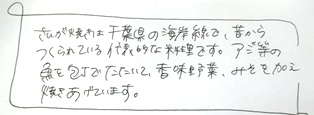 さんが焼きは千葉県の海岸線で、昔から
つくられている代表的な料理です。アジ等の
魚を包丁でたたいて、香味野菜、みそを加え
焼きあげています。